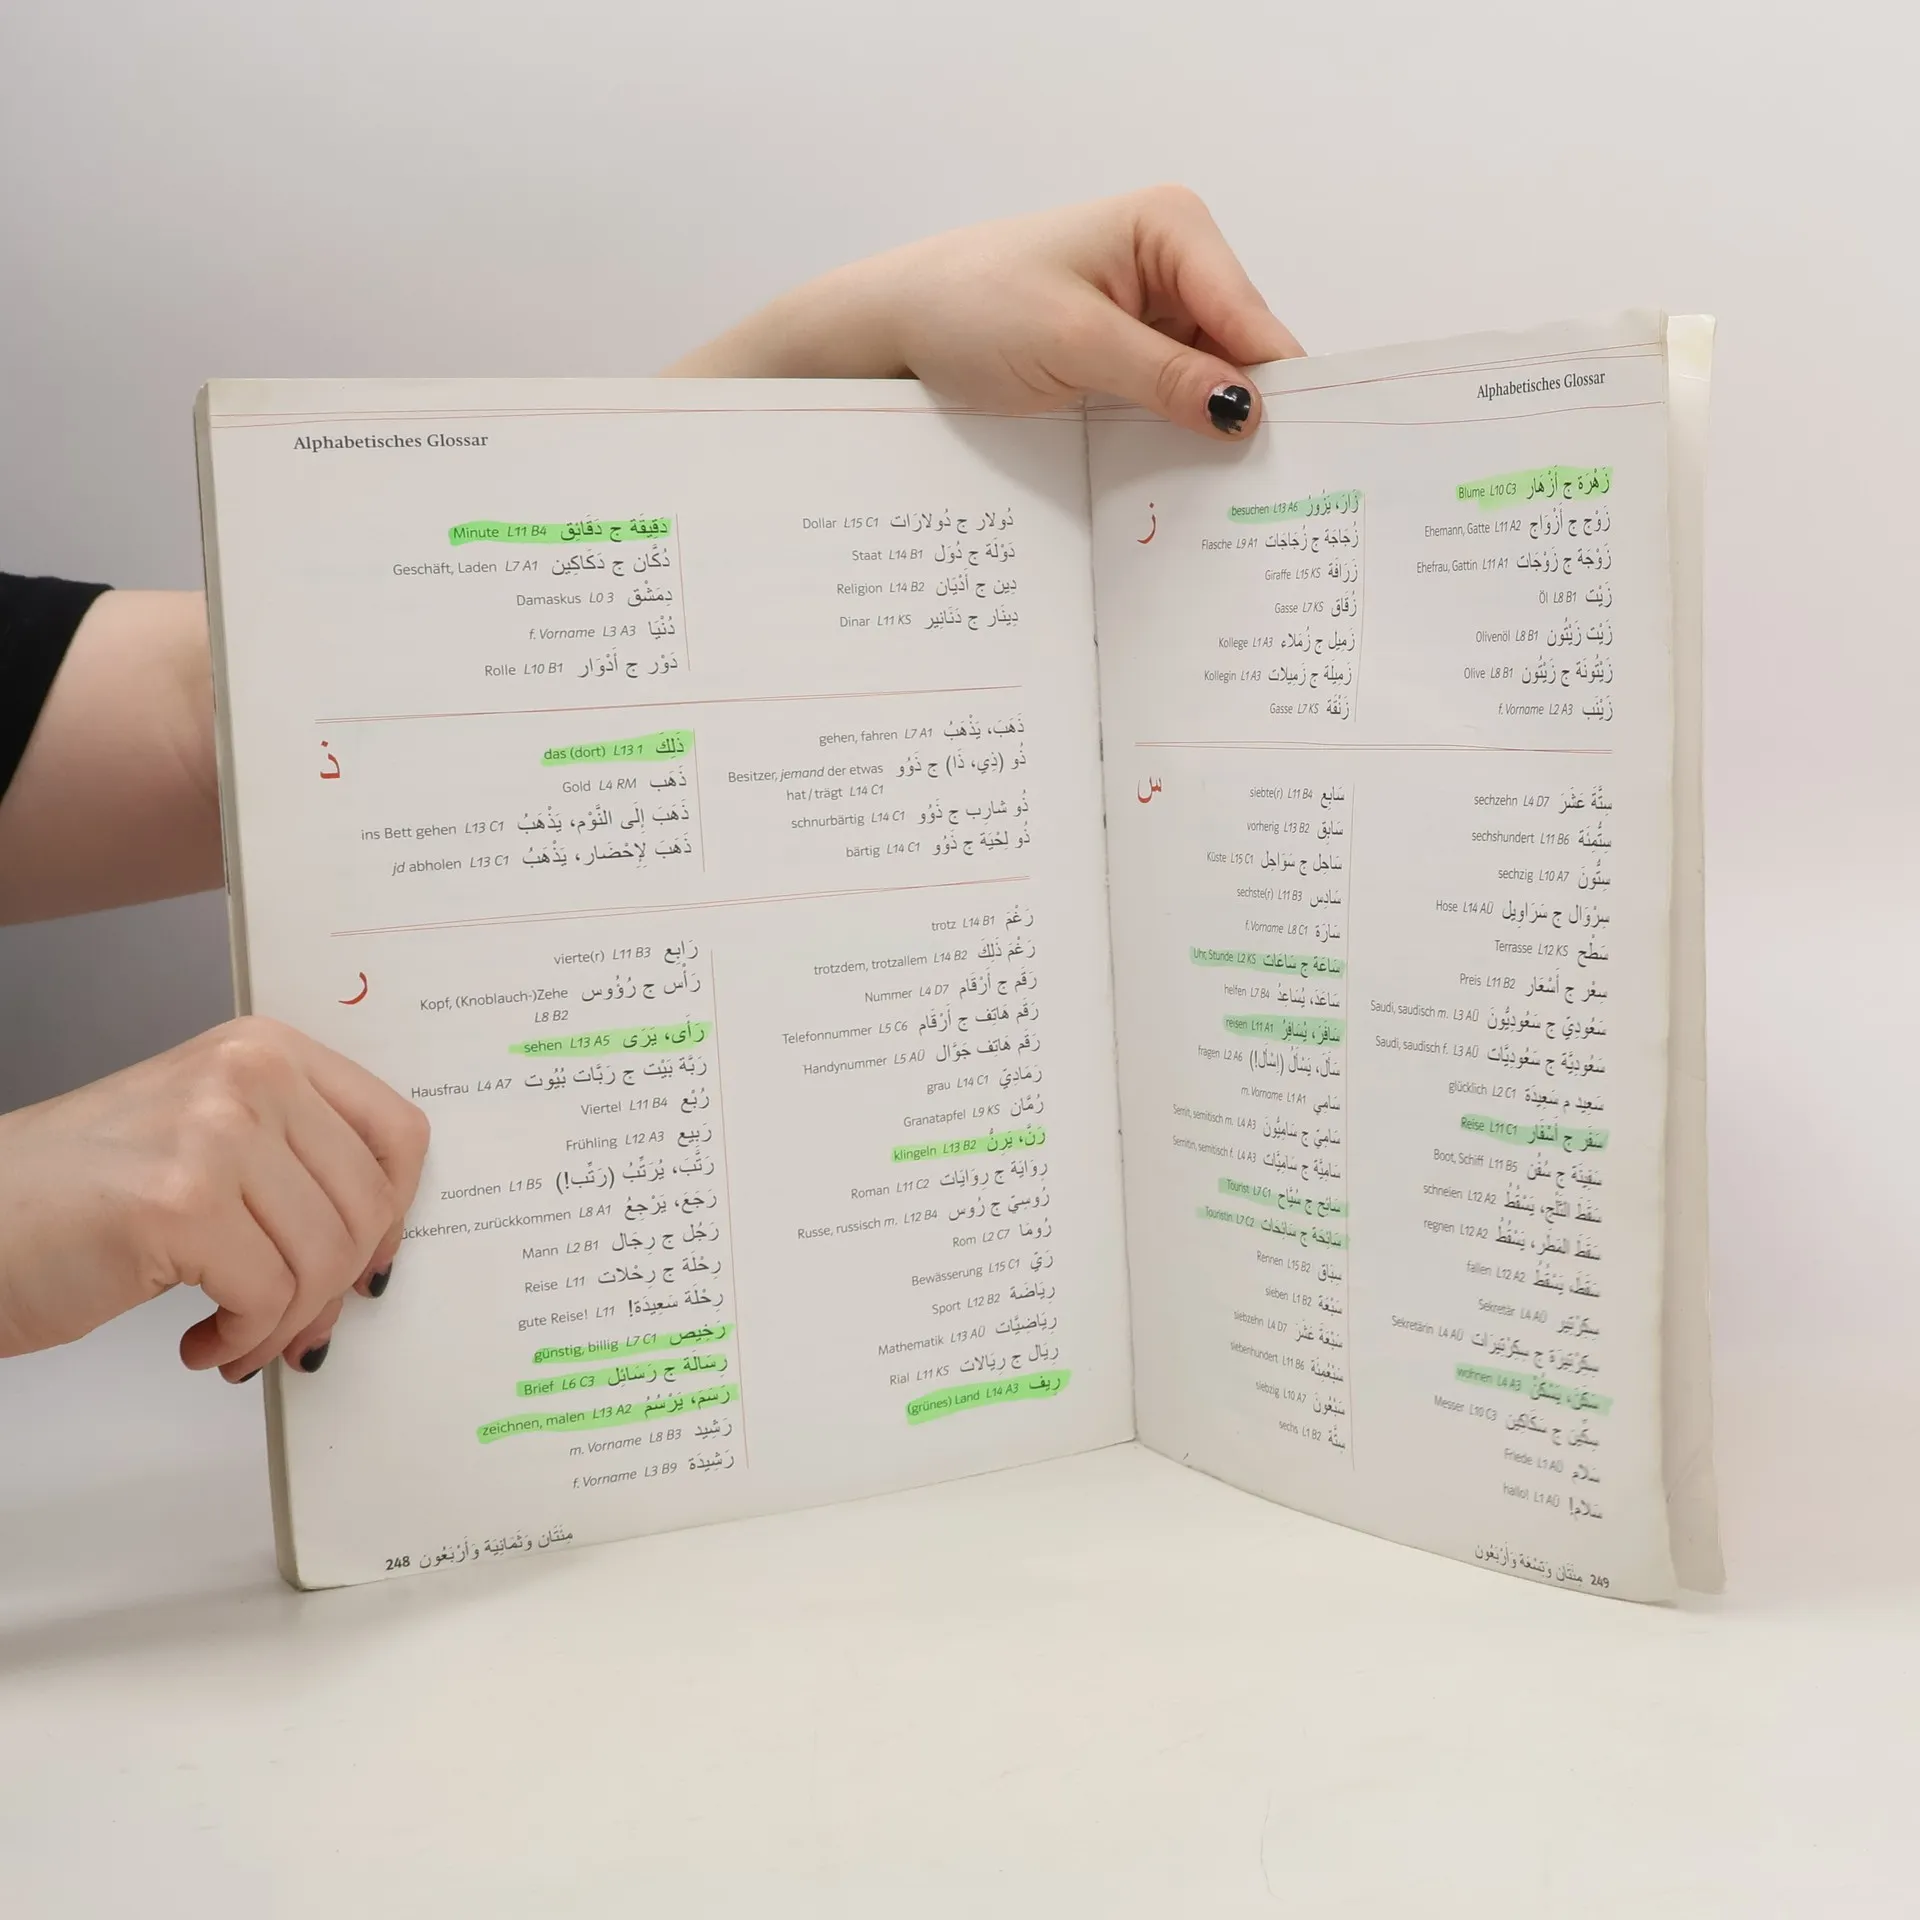 Alphabetisches Glossar
Minute L11 B4 دَقِيقَة ج دَقَائِق
Geschäft, Laden L7 A1 دُكَّان ج دَكَاكِين
Damaskus L0 3 دِمَشْق
f. Vorname L3 A3 دُنْيَا
Rolle L10 B1 دَوْر ج أَدْوَار
Dollar L15 C1 دُولار ج دُولارَات
Staat L14 B1 دَوْلَة ج دُوَل
Religion L14 B2 دِين ج أَدْيَان
Dinar L11 KS دِينَار ج دَنَانِير
ذ
das (dort) L13 1 ذَلِكَ
Gold L4 RM ذَهَب
ins Bett gehen L13 C1 ذَهَبَ إِلَى النَّوْم، يَذْهَبُ
jd abholen L13 C1 ذَهَبَ لِإِحْضَار، يَذْهَبُ
gehen, fahren L7 A1 ذَهَبَ، يَذْهَبُ
Besitzer, jemand der etwas ذُو (ذِي، ذَا) ج ذَوُو
hat / trägt L14 C1
schnurbärtig L14 C1 ذُو شارِب ج ذَوُو
bärtig L14 C1 ذُو لِحْيَة ج ذَوُو
ر
vierte(r) L11 B3 رَابِع
Kopf, (Knoblauch-)Zehe رَأْس ج رُؤُوس
L8 B2
sehen L13 A5 رَأَى، يَرَى
Hausfrau L4 A7 رَبَّة بَيْت ج رَبَّات بُيُوت
Viertel L11 B4 رُبْع
Frühling L12 A3 رَبِيع
zuordnen L1 B5 رَتَّبَ، يُرَتِّبُ (رَتِّب!)
ückkehren, zurückkommen L8 A1 رَجَعَ، يَرْجِعُ
Mann L2 B1 رَجُل ج رِجَال
Reise L11 رِحْلَة ج رِحْلات
gute Reise! L11 رِحْلَة سَعِيدَة!
günstig, billig L7 C1 رَخِيص
Brief L6 C3 رِسَالَة ج رَسَائِل
zeichnen, malen L13 A2 رَسَمَ، يَرْسُمُ
m. Vorname L8 B3 رَشِيد
f. Vorname L3 B9 رَشِيدَة
trotz L14 B1 رَغْمَ
trotzdem, trotzallem L14 B2 رَغْمَ ذَلِكَ
Nummer L4 D7 رَقْم ج أَرْقَام
Telefonnummer L5 C6 رَقْم هَاتِف ج أَرْقَام
Handynummer L5 AÜ رَقْم هَاتِف جَوَّال
grau L14 C1 رَمَادِيّ
Granatapfel L9 KS رُمَّان
klingeln L13 B2 رَنَّ، يَرِنُّ
Roman L11 C2 رِوَايَة ج رِوَايَات
Russe, russisch m. L12 B4 رُوسِيّ ج رُوس
Rom L2 C7 رُومَا
Bewässerung L15 C1 رَيّ
Sport L12 B2 رِيَاضَة
Mathematik L13 AÜ رِيَاضِيَّات
Rial L11 KS رِيَال ج رِيَالات
(grünes) Land L14 A3 رِيف
248 مِئَتَان وَثَمَانِيَة وَأَرْبَعُون
Alphabetisches Glossar
ز
besuchen L13 A6 زَارَ، يَزُورُ
Flasche L9 A1 زُجَاجَة ج زُجَاجَات
Giraffe L15 KS زَرَافَة
Gasse L7 KS زُقَاق
Kollege L1 A3 زَمِيل ج زُمَلاء
Kollegin L1 A3 زَمِيلَة ج زَمِيلات
Gasse L7 KS زَنْقَة
Blume L10 C3 زَهْرَة ج أَزْهَار
Ehemann, Gatte L11 A2 زَوْج ج أَزْوَاج
Ehefrau, Gattin L11 A1 زَوْجَة ج زَوْجَات
Öl L8 B1 زَيْت
Olivenöl L8 B1 زَيْت زَيْتُون
Olive L8 B1 زَيْتُونَة ج زَيْتُون
f. Vorname L2 A3 زَيْنَب
س
siebte(r) L11 B4 سَابِع
vorherig L13 B2 سَابِق
Küste L15 C1 سَاحِل ج سَوَاحِل
sechste(r) L11 B3 سَادِس
f. Vorname L8 C1 سَارَة
Uhr, Stunde L2 KS سَاعَة ج سَاعَات
helfen L7 B4 سَاعَدَ، يُسَاعِدُ
reisen L11 A1 سَافَرَ، يُسَافِرُ
fragen L2 A6 سَأَلَ، يَسْأَلُ (اِسْأَل!)
m. Vorname L1 A1 سَامِي
Semit, semitisch m. L4 A3 سَامِيّ ج سَامِيُّونَ
Semitin, semitisch f. L4 A3 سَامِيَّة ج سَامِيَّات
Tourist L7 C1 سَائِح ج سُيَّاح
Touristin L7 C2 سَائِحَة ج سَائِحَات
Rennen L15 B2 سِبَاق
sieben L1 B2 سَبْعَة
siebzehn L4 D7 سَبْعَةَ عَشَرَ
siebenhundert L11 B6 سَبْعُمِئَة
siebzig L10 A7 سَبْعُونَ
sechs L1 B2 سِتَّة
sechzehn L4 D7 سِتَّةَ عَشَرَ
sechshundert L11 B6 سِتُّمِئَة
sechzig L10 A7 سِتُّونَ
Hose L14 AÜ سِرْوَال ج سَرَاوِيل
Terrasse L12 KS سَطْح
Preis L11 B2 سِعْر ج أَسْعَار
Saudi, saudisch m. L3 AÜ سَعُودِيّ ج سَعُودِيُّونَ
Saudi, saudisch f. L3 AÜ سَعُودِيَّة ج سَعُودِيَّات
glücklich L2 C1 سَعِيد م سَعِيدَة
Reise L11 C1 سَفَر ج أَسْفَار
Boot, Schiff L11 B5 سَفِينَة ج سُفُن
schneien L12 A2 سَقَطَ الثَّلْج، يَسْقُطُ
regnen L12 A2 سَقَطَ المَطَر، يَسْقُطُ
fallen L12 A2 سَقَطَ، يَسْقُطُ
Sekretär L4 AÜ سِكِرْتِير
Sekretärin L4 AÜ سِكِرْتِيرَة ج سِكِرْتِيرَات
wohnen L4 A3 سَكَنَ، يَسْكُنُ
Messer L10 C3 سِكِّين ج سَكَاكِين
Friede L1 AÜ سَلام
hallo! L1 AÜ سَلام!
مِئَتَان وَتِسْعَة وَأَرْبَعُون 249